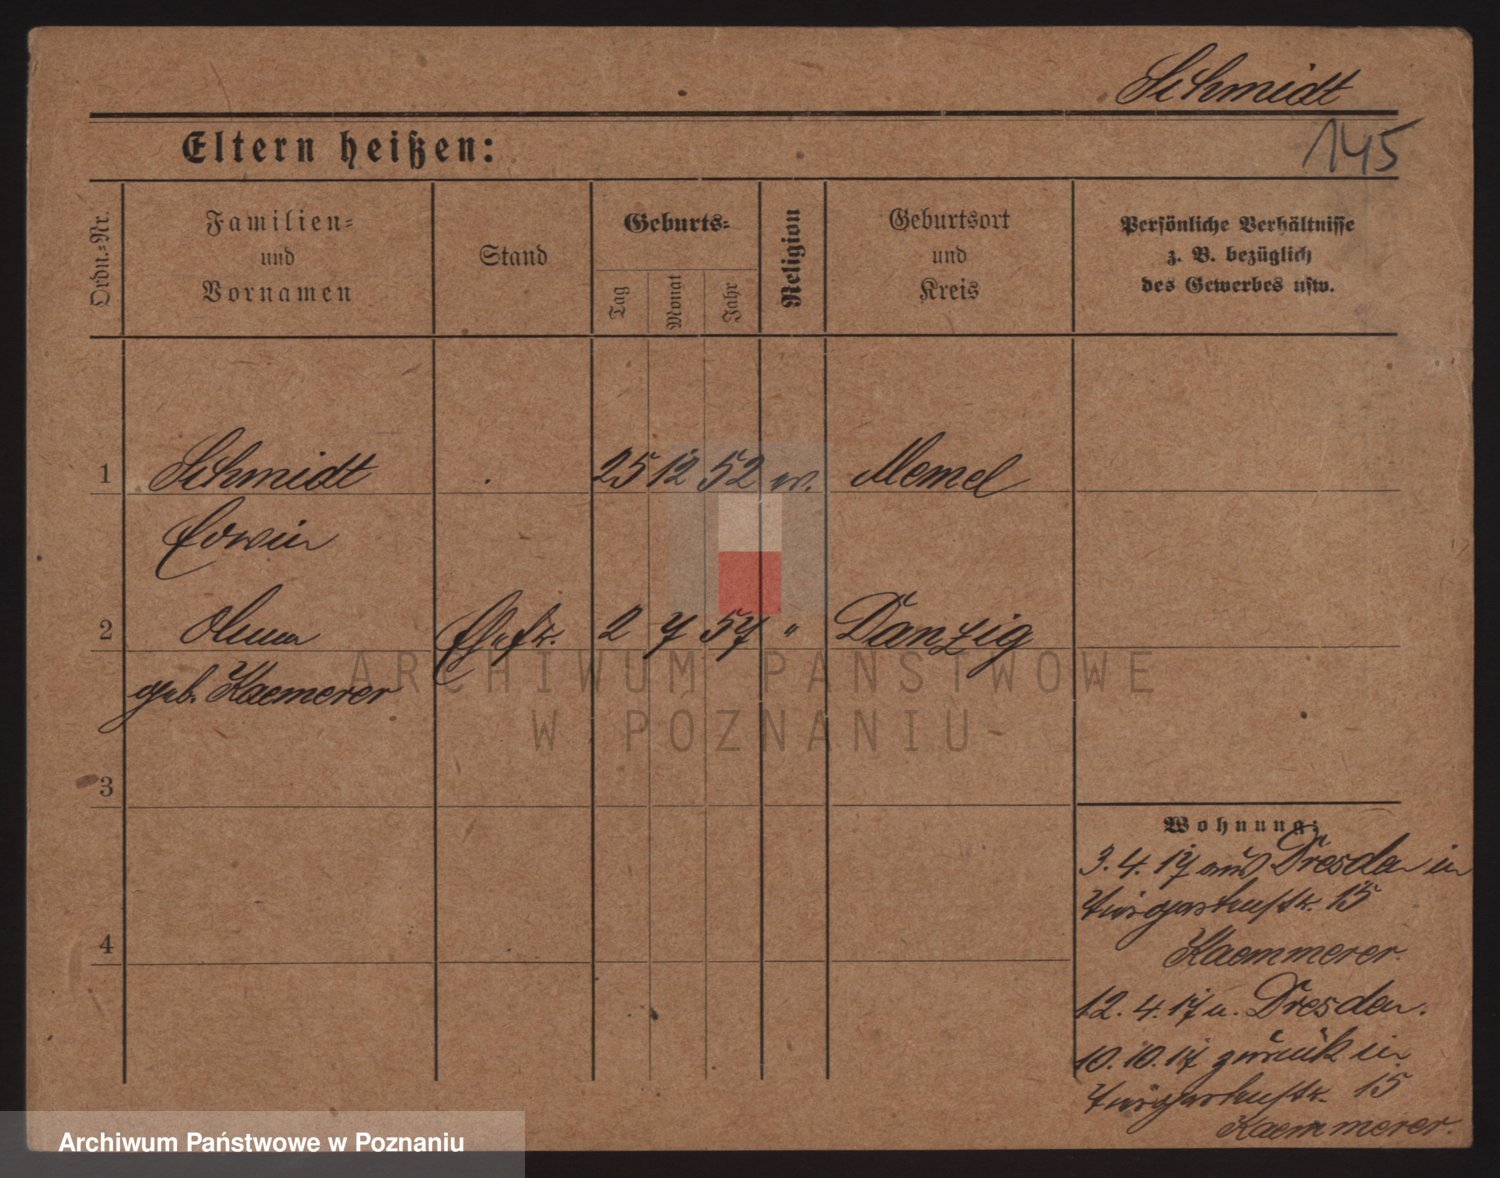 Schmidt
145
Eltern heißen:
Ordn.-Nr.
Familien-
und
Vornamen
Stand
Geburts-
Tag
Monat
Jahr
Religion
Geburtsort
und
Kreis
Persönliche Verhältnisse
z. B. bezüglich
des Gewerbes usw.
1 Schmidt 25 12 52 w. Memel
Erwin
2 Ehefr. 2 7 57 " Danzig
geb. Kaemerer
3
4
Wohnung:
3. 4. 17 aus Dresden in
15
Kaemmerer.
12. 4. 17 n. Dresden.
10. 10. 17 zurück in
15
Kaemmerer.
ARCHIWUM PAŃSTWOWE
W POZNANIU
Archiwum Państwowe w Poznaniu